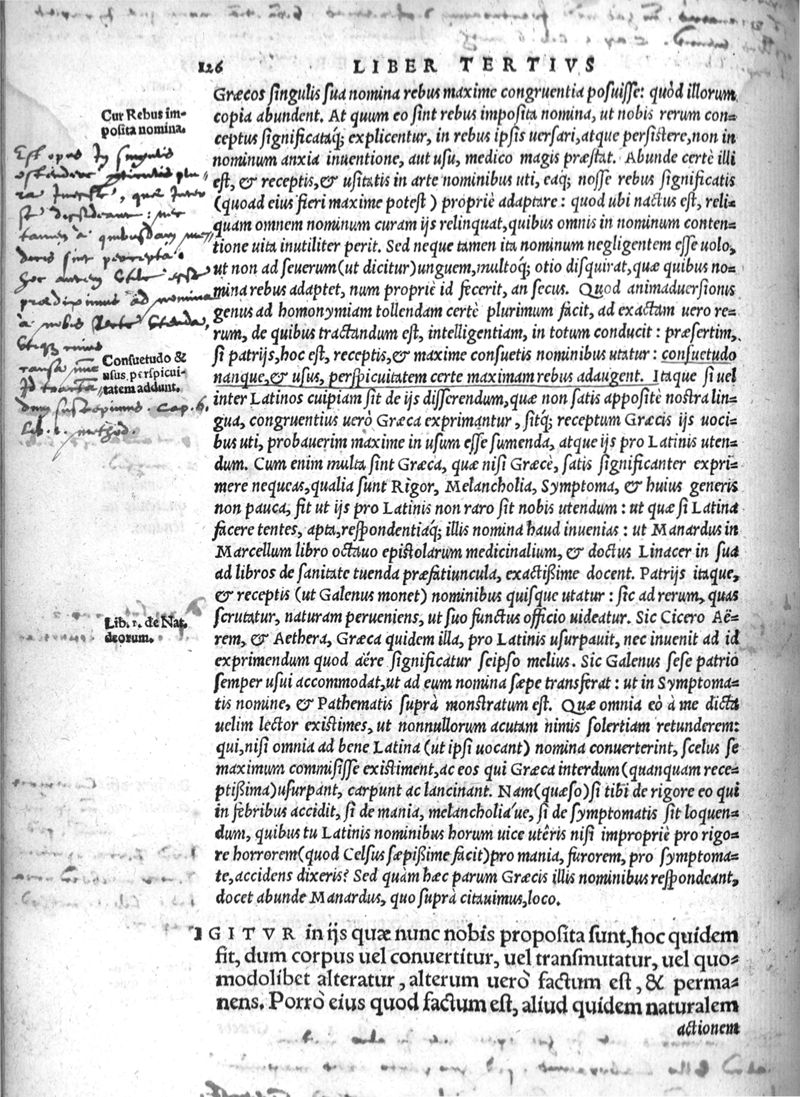 126 LIBER TERTIVS
Græcos singulis sua nomina rebus maxime congruentia posuisse: quòd illorum
copia abundent. At quum eo sint rebus imposita nomina, ut nobis rerum con=
ceptus significataq; explicentur, in rebus ipsis uersari, atque persistere, non in
nominum anxia inuentione, aut usu, medico magis præstat. Abunde certè illi
est, & receptis, & usitatis in arte nominibus uti, eaq; nosse rebus significatis
(quoad eius fieri maxime potest) propriè adaptare: quod ubi nactus est, reli=
quam omnem nominum curam ijs relinquat, quibus omnis in nominum conten=
tione uita inutiliter perit. Sed neque tamen ita nominum negligentem esse uolo,
ut non ad seuerum (ut dicitur) unguem, multoq; otio disquirat, quæ quibus no=
mina rebus adaptet, num propriè id fecerit, an secus. Quod animaduersionis
genus ad homonymiam tollendam certè plurimum facit, ad exactam uero re=
rum, de quibus tractandum est, intelligentiam, in totum conducit: præsertim,
si patrijs, hoc est, receptis, & maxime consuetis nominibus utatur: consuetudo
nanque, & usus, perspicuitatem certe maximam rebus adaugent. Itaque si uel
inter Latinos cuipiam sit de ijs disserendum, quæ non satis appositè nostra lin=
gua, congruentius uerò Græca exprimantur, sitq; receptum Græcis ijs uoci=
bus uti, probauerim maxime in usum esse sumenda, atque ijs pro Latinis uten=
dum. Cum enim multa sint Græca, quæ nisi Græcè, satis significanter expri=
mere nequeas, qualia sunt Rigor, Melancholia, Symptoma, & huius generis
non pauca, fit ut ijs pro Latinis non raro sit nobis utendum: ut quæ si Latina
facere tentes, apta, respondentiaq; illis nomina haud inuenias: ut Manardus in
Marcellum libro octauo epistolarum medicinalium, & doctus Linacer in sua
ad libros de sanitate tuenda præfatiuncula, exactißime docent. Patrijs itaque,
& receptis (ut Galenus monet) nominibus quisque utatur: sic ad rerum, quas
scrutatur, naturam perueniens, ut suo functus officio uideatur. Sic Cicero Aë=
rem, & Aethera, Græca quidem illa, pro Latinis usurpauit, nec inuenit ad id
exprimendum quod aëre significatur seipso melius. Sic Galenus sese patrio
semper usui accommodat, ut ad eum nomina sæpe transferat: ut in Symptoma=
tis nomine, & Pathematis suprà monstratum est. Quæ omnia eò à me dicta
uelim lector existimes, ut nonnullorum acutam nimis solertiam retunderem:
qui, nisi omnia ad bene Latina (ut ipsi uocant) nomina conuerterint, scelus se
maximum commisisse existiment, ac eos qui Græca interdum (quanquam rece=
ptißima) usurpant, carpunt ac lancinant. Nam (quæso) si tibi de rigore eo qui
in febribus accidit, si de mania, melancholia'ue, si de symptomatis sit loquen=
dum, quibus tu Latinis nominibus horum uice utêris nisi impropriè pro rigo=
re horrorem (quod Celsus sæpißime facit) pro mania, furorem, pro symptoma=
te, accidens dixeris? Sed quàm hæc parum Græcis illis nominibus respondeant,
docet abunde Manardus, quo suprà citauimus, loco.
IGITVR in ijs quæ nunc nobis proposita sunt, hoc quidem
fit, dum corpus uel conuertitur, uel transmutatur, uel quo=
modolibet alteratur, alterum uerò factum est, & perma=
nens. Porrò eius quod factum est, aliud quidem naturalem
actionem
Cur Rebus im=
posita nomina.
Est opus in singulis
ostendere
hoc autem
prædiximus ad nomina
à nobis
Consuetudo &
usus, perspicui=
tatem addunt.
cap. 6.
lib. 1. method.
Lib. 1. de Nat.
deorum.